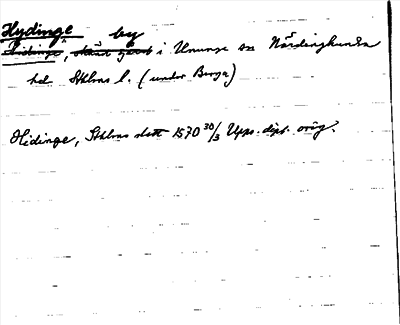 Hydinge by
Hidinge, skatt gård i Ununge sn Närdinghundra
hd Sthlms l. (under Berga)
Hidinge, Sthlms slott 1570 30/3 Upps. dipl. orig.